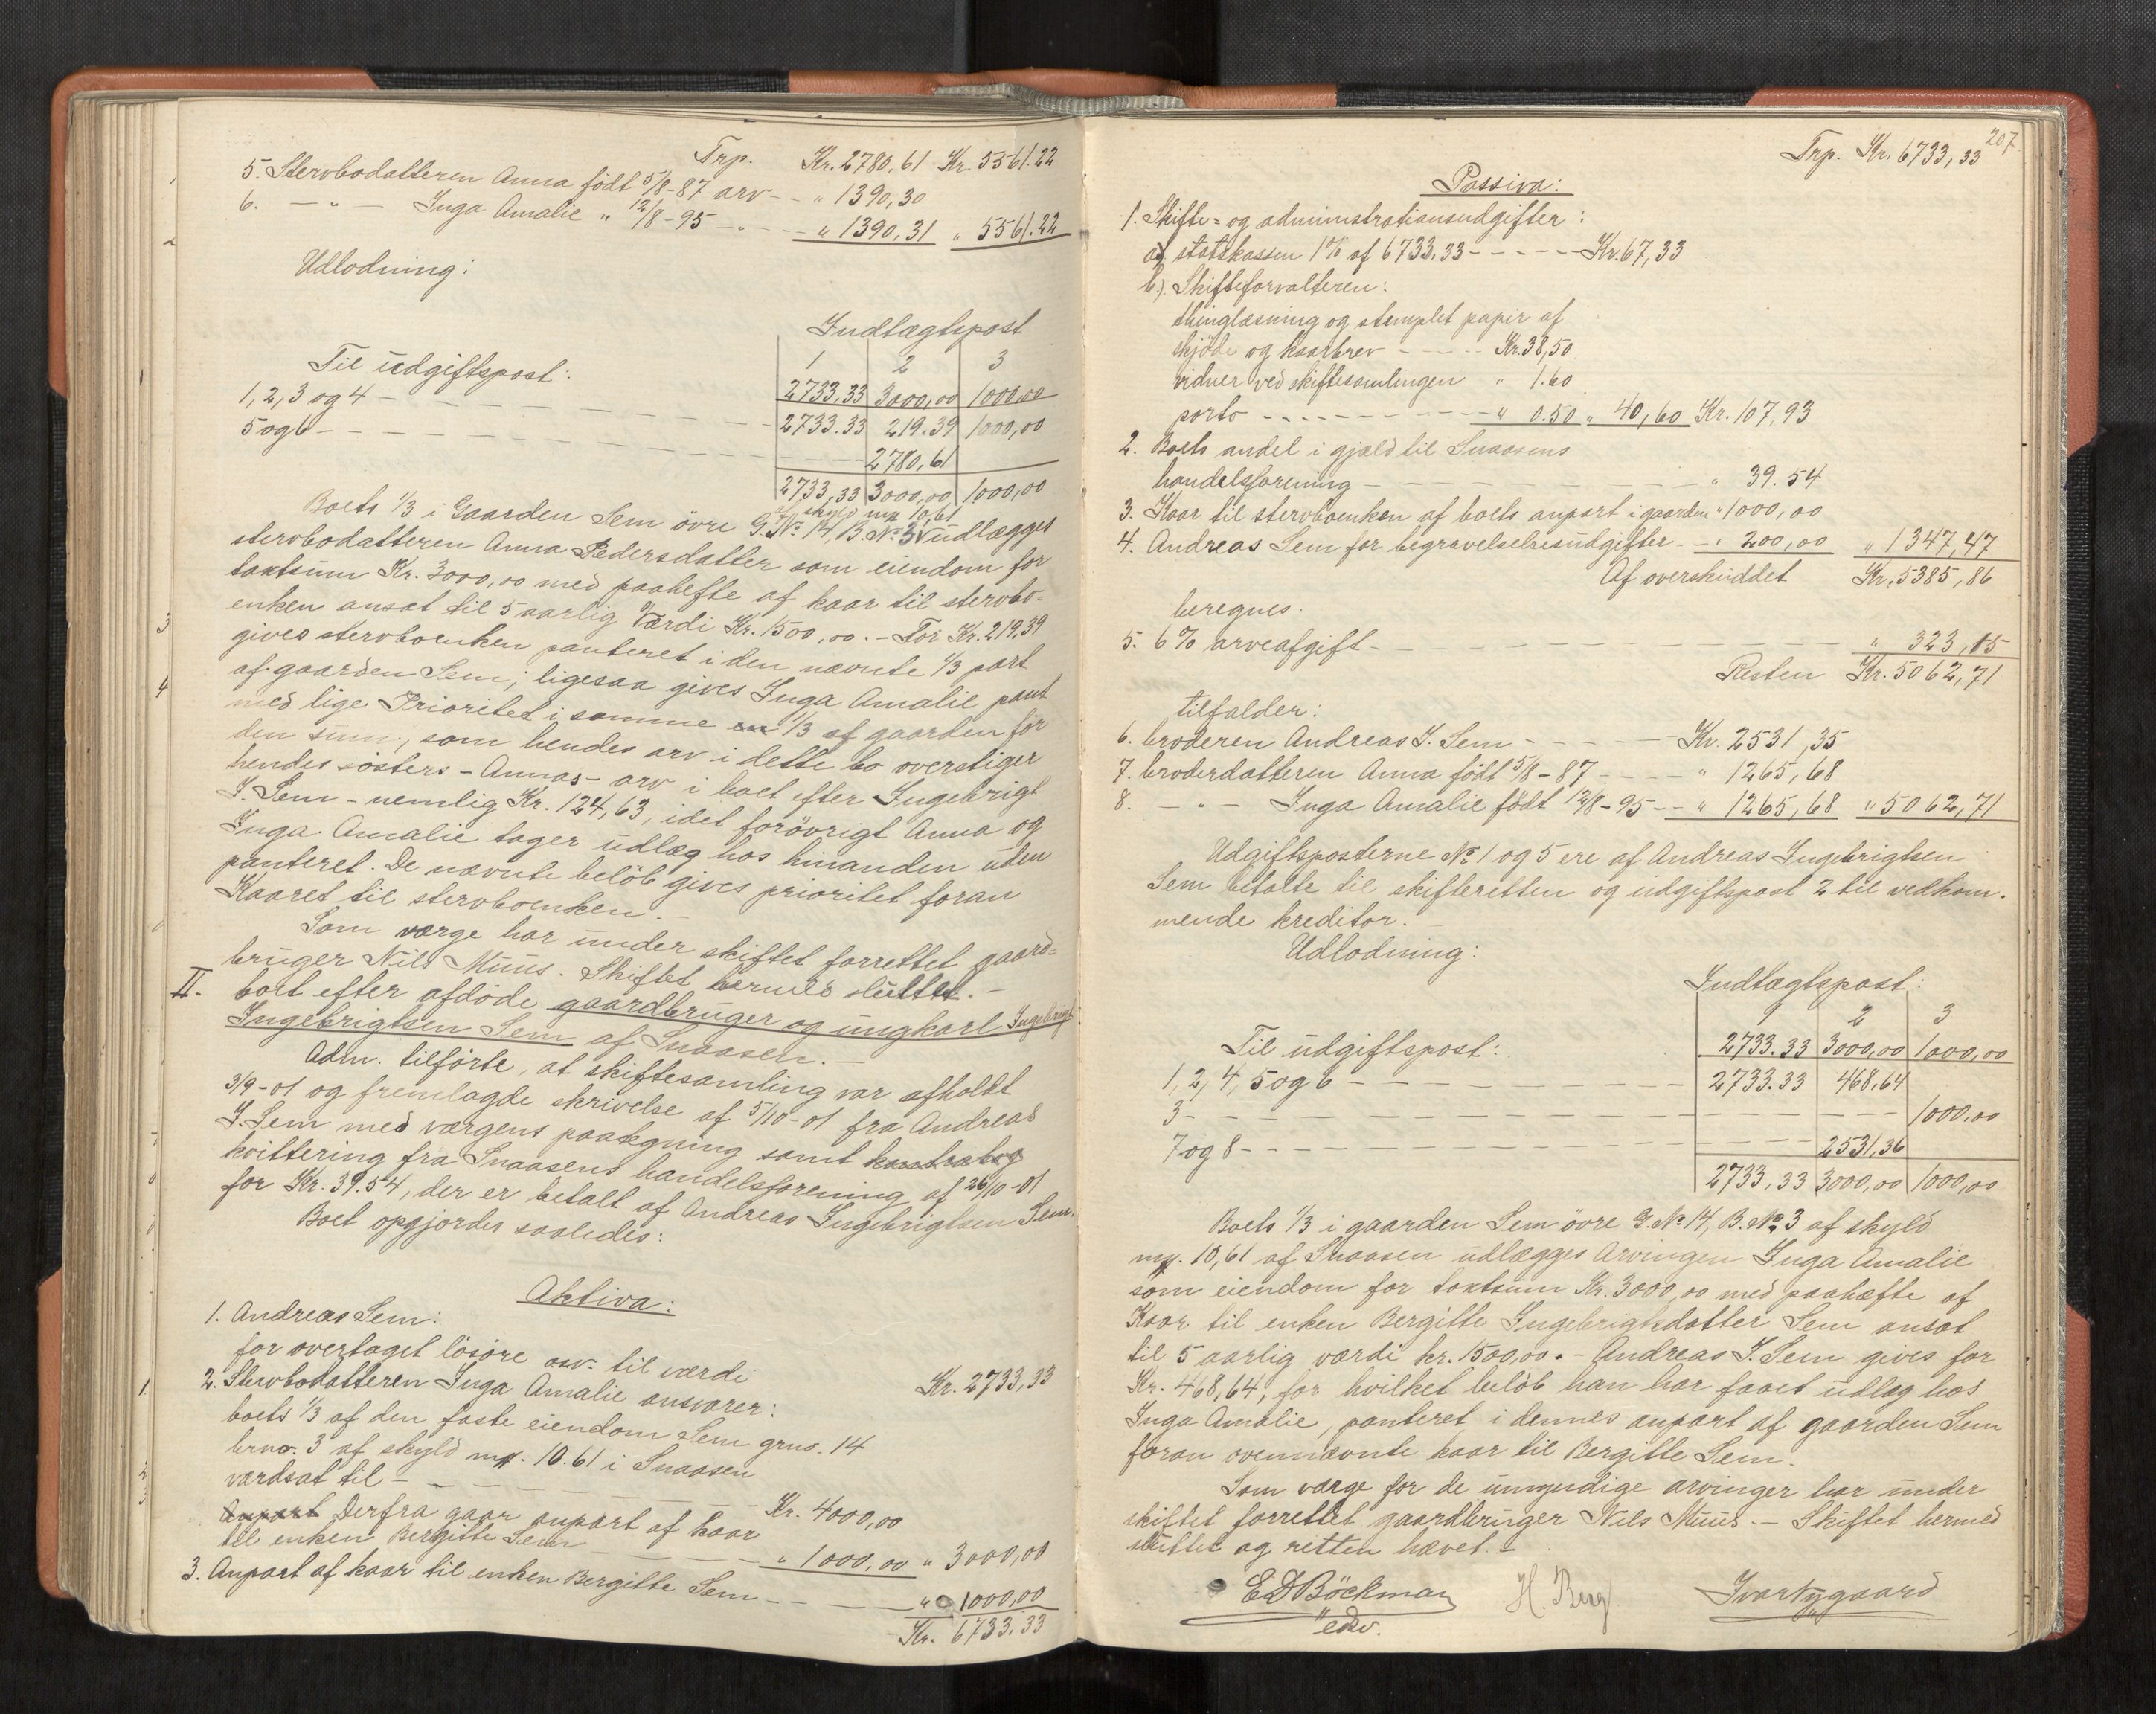 Trp. Kr. 2780,61 Kr. 5561.22
5. Stervbodatteren Anna født 5/8-87 arv - - " 1390,30
6. - " - Inga Amalie " 12/8-95 - " - - - " 1390,31 " 5561.22
Udlodning:
Indtægtspost
Til udgiftspost: 1 2 3
2733.33 3000,00 1000,00
1, 2, 3 og 4 - - - - - 2733.33 219.39 1000,00
5 og 6 - - - - - 2780,61
2733,33 3000,00 1000,00
af skyld mrk 10,61
Boets 1/3 i Gaarden Sem övre G. No. 14, B. No. 3 udlægges
stervbodatteren Anna Pedersdatter som eiendom for
taxtsum Kr. 3000,00 med paahefte af kaar til stervbo-
enken ansat til 5 aarlig Værdi Kr. 1500,00. - For Kr. 219,39
gives stervboenken panteret i den nævnte 1/3 part
af gaarden Sem; ligesaa gives Inga Amalie pant
med lige Prioritet i samme en 1/3 af gaarden for
den sum, som hendes arv i dette bo overstiger
hendes søsters - Annas - arv i boet efter Ingebrigt
I. Sem - nemlig Kr. 124,63, idet forövrigt Anna og
Inga Amalie tager udlæg hos hinanden uden
panteret. De nævnte belöb gives prioritet foran
Kaaret til stervboenken. -
Som værge har under skiftet forrettet gaard-
bruger Nils Muus. Skiftet hermed sluttet. -
II. boet efter afdöde gaardbruger og ungkarl Ingebrigt
Ingebrigtsen Sem af Snaasen. -
Adm. tilførte, at skiftesamling var afholdt
3/9-01 og fremlagde skrivelse af 5/10-01 fra Andreas
I. Sem med værgens paategning samt
kvittering fra Snaasens handelsforening af 26/10-01
for Kr. 39.54, der er betalt af Andreas Ingebrigtsen Sem.
Boet opgjordes saaledes:
Aktiva:
1. Andreas Sem:
for overtaget lösöre osv. til værdi Kr. 2733,33
2. Stervbodatteren Inga Amalie ansvarer:
boets 1/3 af den faste eiendom Sem grno. 14
brno. 3 af skyld mrk. 10.61 i Snaasen
værdsat til - - - - - Kr. 4000,00
Anpart Derfra gaar anpart af kaar
til enken Bergitte Sem - - - " 1000,00 " 3000,00
3. Anpart af kaar til enken Bergitte Sem - - - " 1000,00
Kr. 6733.33
207
Trp. Kr. 6733,33
Passiva:
1. Skifte- og administrationsudgifter:
a) statskassen 1% af 6733,33 - - - - - Kr. 67,33
b). Skifteforvalteren:
thinglæsning og stemplet papir af
skjöde og kaarbrev - - - - Kr. 38,50
vidner ved skiftesamlingen " 1.60
porto - - - - - - " 0.50 " 40,60 Kr. 107,93
2. Boets andel i gjæld til Snaasens
handelsforening - - - - - " 39.54
3. Kaar til stervboenken af boets anpart i gaarden " 1000,00
4. Andreas Sem for begravelselsesudgifter - - " 200,00 " 1347,47
Af overskuddet Kr. 5385,86
beregnes.
5. 6% arveafgift - - - - - " 323,15
Resten Kr. 5062,71
tilfalder:
6. broderen Andreas I. Sem - - - - - Kr. 2531,35
7. broderdatteren Anna født 5/8-87 - - - " 1265,68
8. - " - Inga Amalie født 12/8-95 - - " 1265,68 " 5062,71
Udgiftsposterne No. 1 og 5 ere af Andreas Ingebrigtsen
Sem betalte til skifteretten og udgiftspost 2 til vedkom-
mende kreditor. -
Udlodning:
Indtægtspost:
1 2 3
Til udgiftspost: 2733.33 3000,00 1000,00
1, 2, 4, 5 og 6 - - - - - 2733.33 468.64
3 - - - - - 1000,00
7 og 8 - - - - - 2531,36
2733,33 3000,00 1000,00
Boets 1/3 i gaarden Sem övre G. No. 14, B. No. 3 af skyld
mrk. 10,61 af Snaasen udlægges Arvingen Inga Amalie
som eiendom for taxtsum Kr. 3000,00 med paahæfte af
Kaar til enken Bergitte Ingebrigtsdatter Sem ansat
til 5 aarlig værdi kr. 1500,00. - Andreas I. Sem gives for
Kr. 468,64, for hvilket belöb han har faaet udlæg hos
Inga Amalie, panteret i dennes anpart af gaarden Sem
foran ovennævnte kaar til Bergitte Sem.
Som værge for de umyndige arvinger har under
skiftet forrettet gaardbruger Nils Muus. - Skiftet hermed
sluttet og retten hævet. -
E D Böckman H. Berg Ivar Nygaard
edsv.